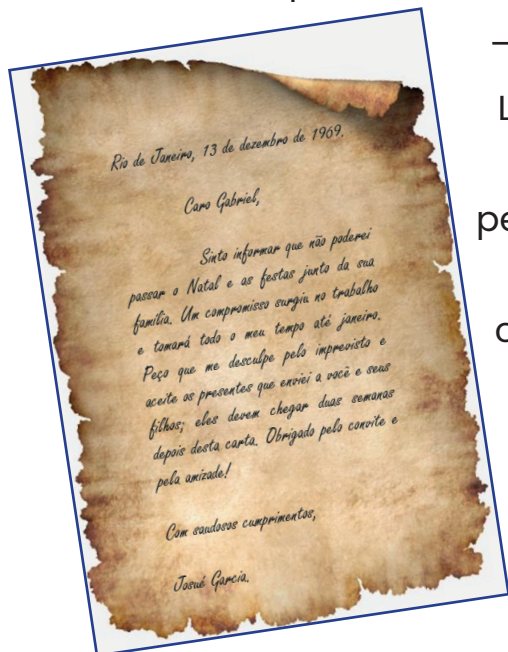 Rio de Janeiro, 13 de dezembro de 1969.
Caro Gabriel,
Sinto informar que não poderei
passar o Natal e as festas junto da sua
família. Um compromisso surgiu no trabalho
e tomará todo o meu tempo até janeiro.
Peço que me desculpe pelo imprevisto e
aceite os presentes que enviei a você e seus
filhos; eles devem chegar duas semanas
depois desta carta. Obrigado pelo convite e
pela amizade!
Com saudosos cumprimentos,
Josué Garcia.
L
pe